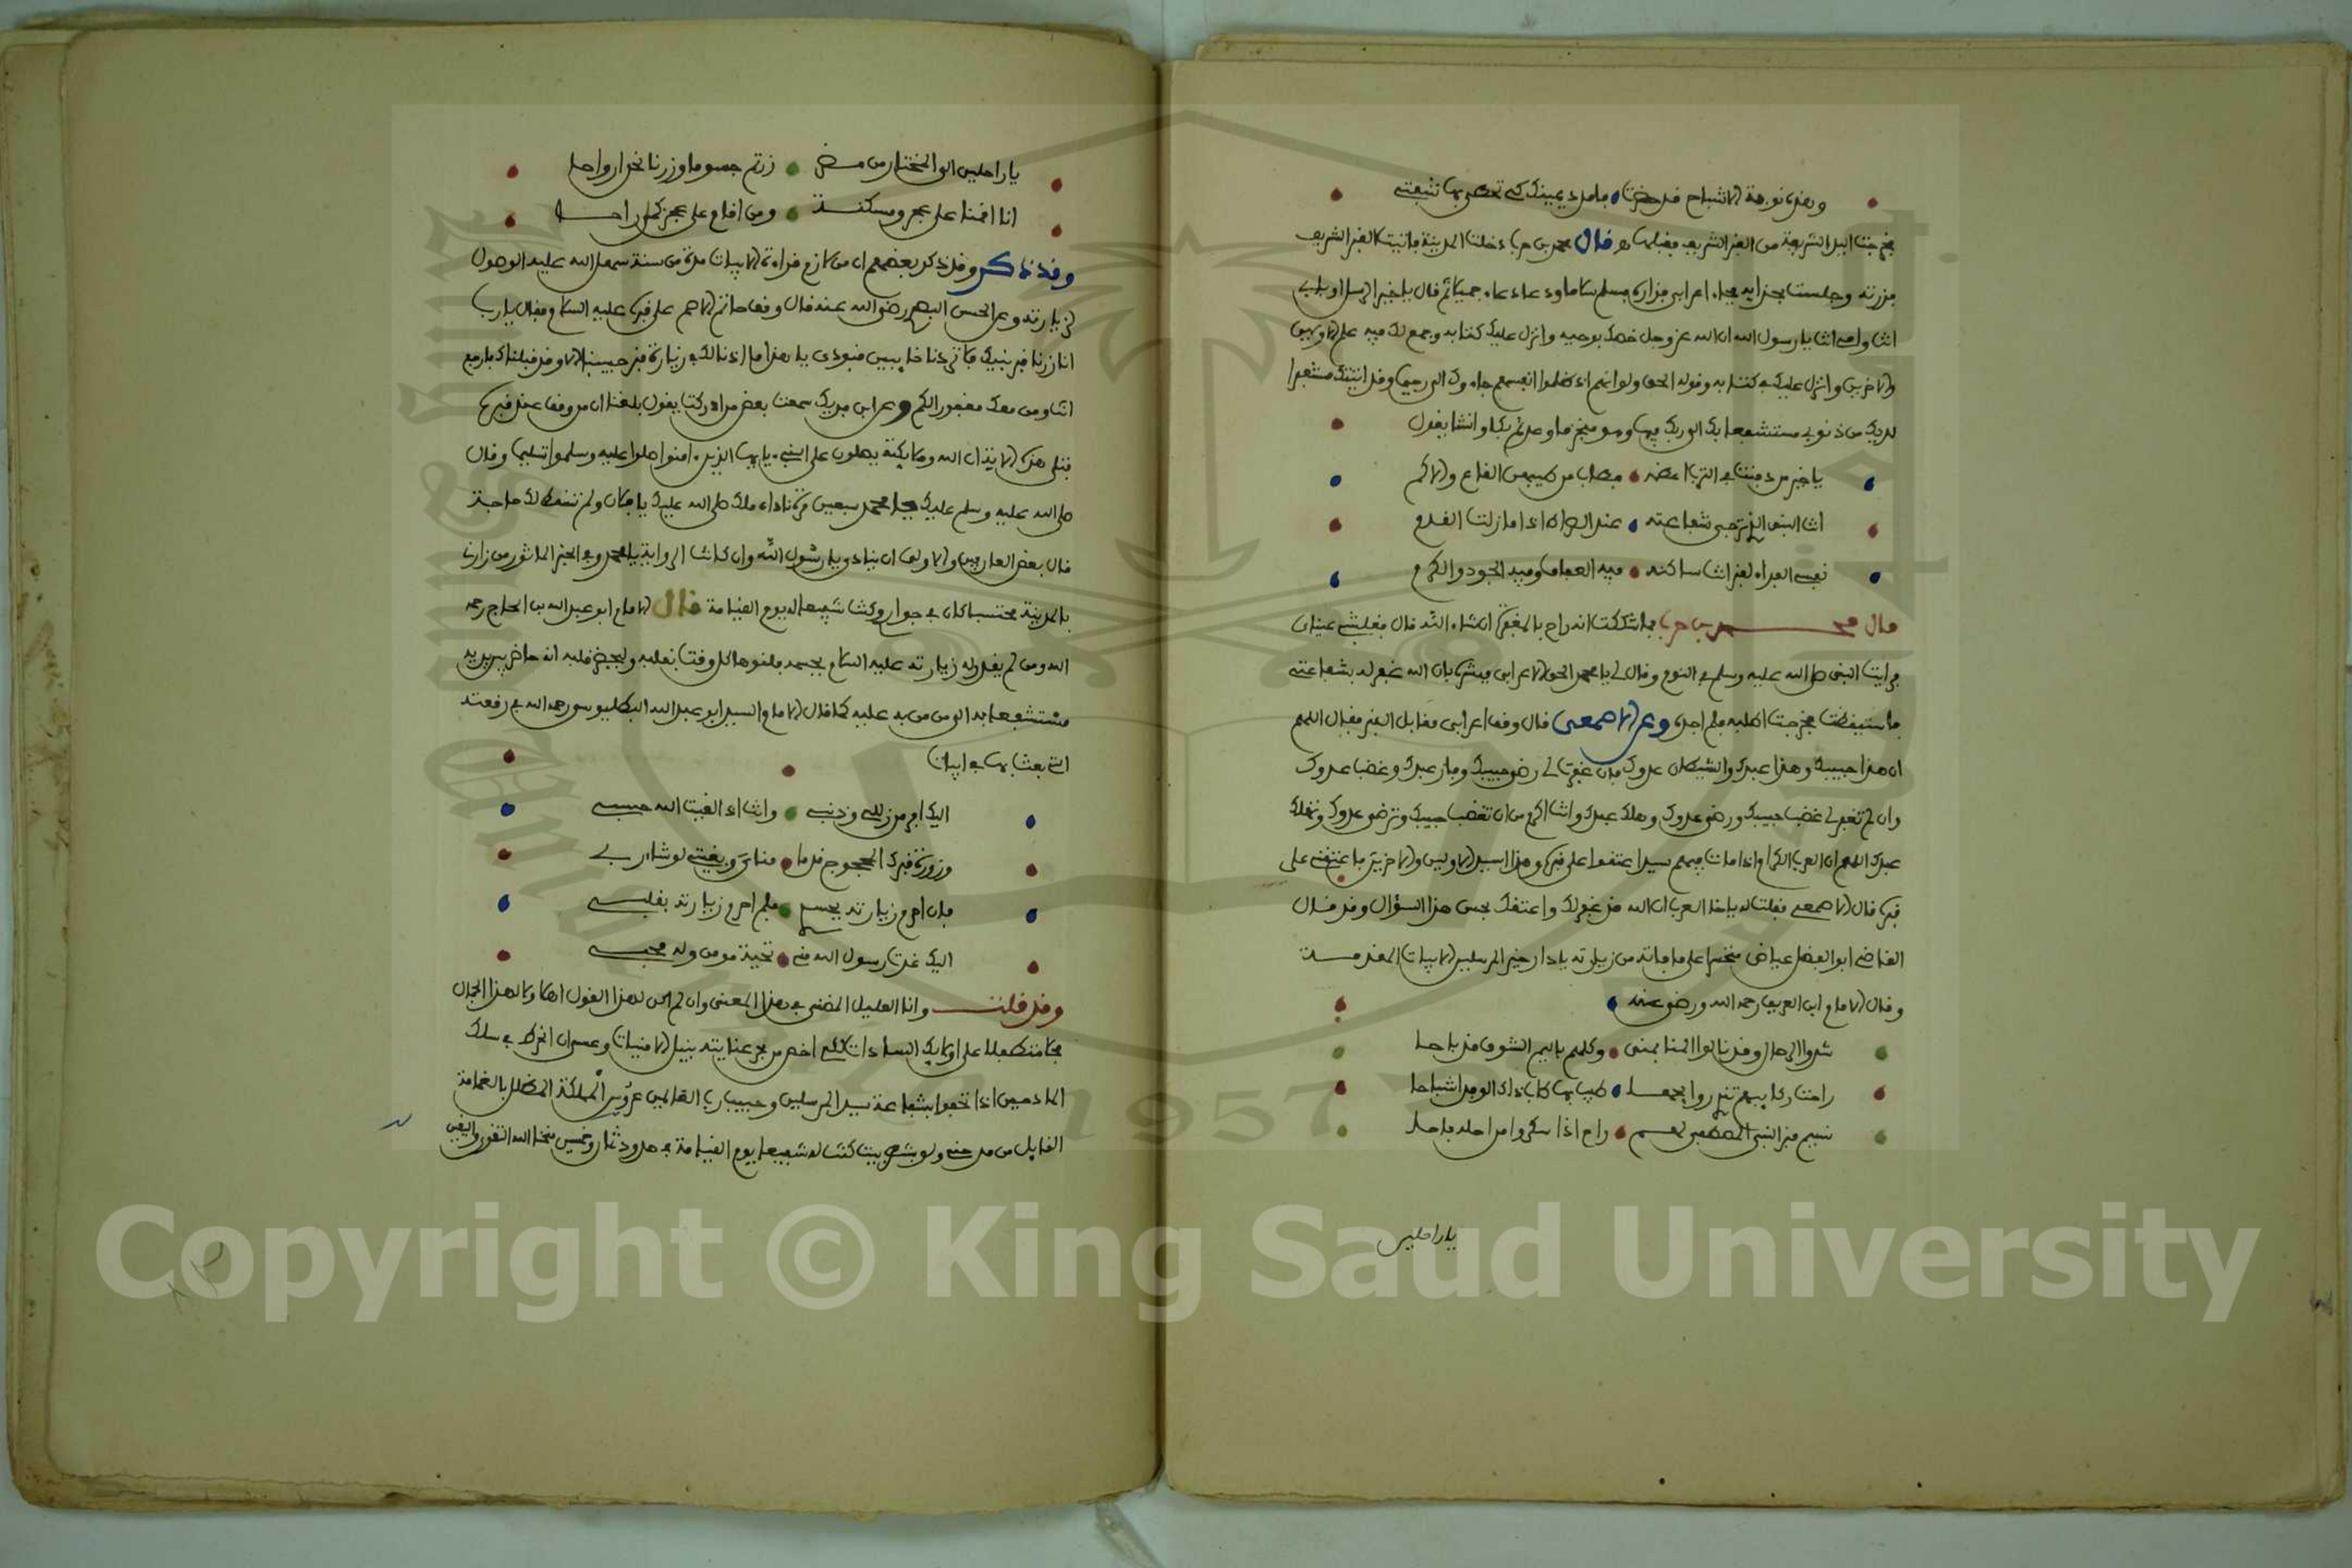 وهذه نوبة الاشباح قد حضرت فامدد يمينك كي تحظى بها شفتي
فخرجت اليد الشريفة من القبر الشريف فقبلها قال محمد بن حرب دخلت المدينة فاتيت القبر الشريف
فزرته وجلست بحذايه فجاء اعرابي فزاره فسلم سلاما ودعا دعاء جميلا ثم قال يا خير الرسل او بابي
انت وامي انت يا رسول الله ان الله عز وجل خصك بوحيه وانزل عليك كتابه وجمع لك فيه علم الاولين
والاخرين وانزل عليك في كتابه وقوله الحق ولو انهم اذ ظلموا انفسهم جاءوك الى رحيما وقد اتيتك مستغفرا
لربك من ذنوبي مستشفعا بك الى ربك فيها وهو منجز ما وعد ثم بكا وانشا يقول
يا خير من دفنت في الترب اعظمه فطاب من طيبهن القاع والاكم
انت النبي الذي ترجى شفاعته عند الصراط اذا ما زلت القدم
نفسي الفداء لقبر انت ساكنه فيه العفاف وفيه الجود والكرم
قال محمد بن حرب فما شككت انه راح بالمغفرة ان شاء الله قال فغلبتني عيناي
فرايت النبي صلى الله عليه وسلم في النوم وقال لي يا محمد الحق الاعرابي فبشره بان الله غفر له بشفاعتي
فاستيقظت فخرجت اطلبه فلم اجده وعن الاصمعي قال وقف اعرابي مقابل القبر فقال اللهم
ان هذا حبيبك وهذا عبدك والشيطان عدوك فان غفرت لي رضي حبيبك وفاز عبدك وغضب عدوك
وان لم تغفر لي غضب حبيبك ورضي عدوك وهلك عبدك وانت اكرم من ان تغضب حبيبك وترضي عدوك وتهلك
عبدك اللهم ان العرب الكرام اذا مات فيهم سيد اعتقوا على قبره وهذا سيد الاولين والاخرين فاعتقني على
قبره قال الاصمعي فقلت له يا اخا العرب ان الله قد غفر لك واعتقك بحسن هذا السؤال وقد قال
القاضي ابو الفضل عياض متحسرا على ما فاته من زيارته يا دار خير المرسلين الابيات المقدمة
وقال الامام ابن العريف رحمه الله ورضي عنه
شدوا الرحال وقد نالوا المنا بمنى وكلهم باليم الشوق قد باحا
راحت ركايبهم تندى روايحها طيبا بما طاب ذاك الوفد اشباحا
نسيم قبر النبي المصطفى لهم راح اذا سكروا من اجله فاحا
يا راحلين
يا راحلين الى المختار من مضر زرتم جسوما وزرنا نحن ارواحا
انا اقمنا على عجز ومسكنة ومن اقام على عجز كمن راحا
وقد ذكر وقد ذكر بعضهم ان من لازم قراءة الابيات مدة من سنة سهل الله عليه الوصول
لزيارته وعن الحسن البصري رضي الله عنه قال وقف حاتم الاصم على قبره عليه السلام وقال يا رب
انا زرنا قبر نبيك فلا تردنا خايبين فنودي يا هذا ما اذنا لك في زيارة قبر حبيبنا الا وقد قبلناك فارجع
انت ومن معك مغفورا لكم وعن ابن فديك سمعت بعض من ادركت يقول بلغنا ان من وقف عند قبره
فتلى هذه الاية ان الله وملايكته يصلون على النبيء يايها الذين ءامنوا صلوا عليه وسلموا تسليما وقال
صلى الله عليه وسلم عليك يا محمد سبعين مرة ناداه ملك صلى الله عليك يا فلان ولم تسقط لك حاجة
قال بعض العارفين والاولى ان ينادي يا رسول الله وان كانت الرواية يا محمد وفي الخبر الماثور من زارني
بالمدينة محتسبا كان في جواري وكنت شفيعا له يوم القيامة قال الامام ابو عبد الله بن الحاج رحمه
الله ومن لم يقدر له زيارته عليه السلام بجسمه فلينوها كل وقت بقلبه وليحضر قلبه انه حاضر بين يديه
مستشفعا به الى من من به عليه كما قال الامام السيد ابو عبد الله البطليوسي رحمه الله في رقعته
التي بعث بها في ابيات
اليك افر من زللي وذنبي وانت اذا لقيت الله حسبي
وزورة قبرك المحجوج قدما مناي وبغيتي لو شاء ربي
فان احرم زيارته بجسمي فلم احرم زيارته بقلبي
اليك غدت رسول الله مني تحية مومن وله محب
وقد قلت وانا العليل المضنى في هذا المعنى وان لم اكن لهذا القول اهلا ولا لهذا المجال
محلا متطفلا على اوليك السادات لكي احضى من بحر عنايته بنيل الامنيات وعسى ان انخرط في سلك
المادحين اذا تحفوا بشفاعة سيد المرسلين وحبيب رب العالمين عروس المملكة المظلل بالغمامة
القايل من مدحني ولو بشطر بيت كنت له شفيعا يوم القيامة في حدود ثمان وخمسين منحنا الله التقى واليقين